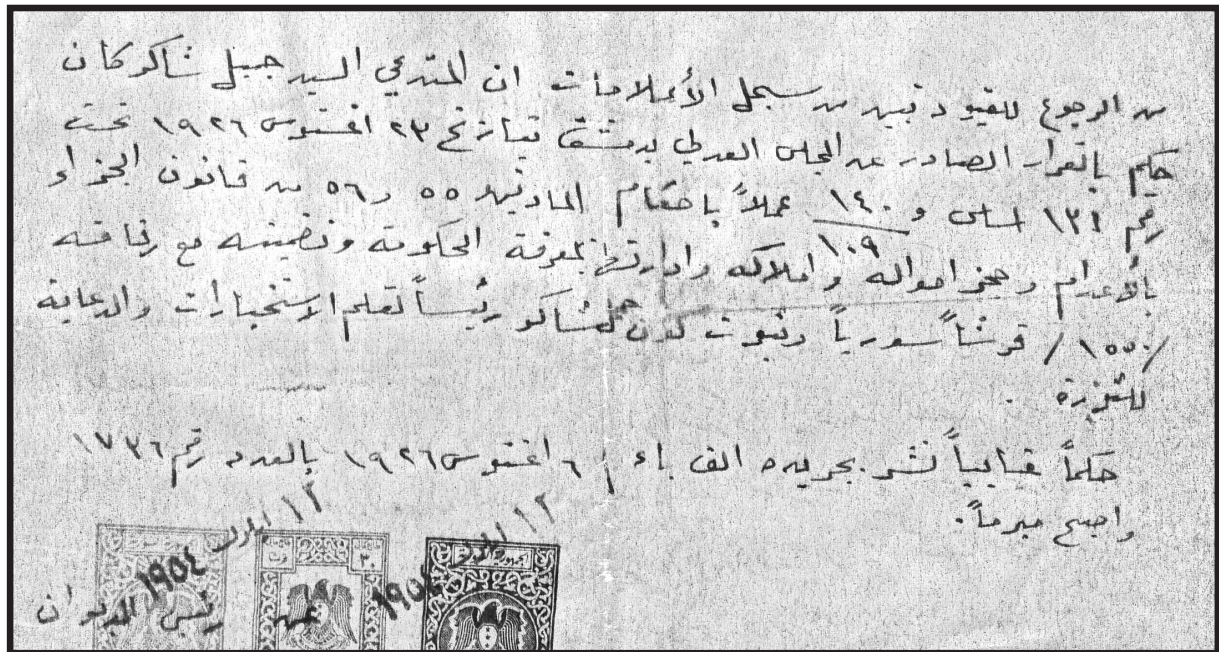 من الرجوع للقيود تبين من سجل الأعلامات ان المتدعي السيد جميل شاكر كان
حكم بالقرار الصادر عن المجلس العدلي بدمشق بتاريخ ٢٣ اغستوس ١٩٢٦ تحت
رقم ١٣١ اساس و ١٤٠/١٠٩ عملاً باحكام المادتين ٥٥ و٥٦ من قانون الجزاء
بالأعدام وحجز امواله واملاكه وادارتها بمعرفة الحكومة وتضمينه مع رفاقه
/١٥٥٠/ قرشاً سورياً وثبوت كون شاكر رئيساً لقلم الاستخبارات والدعاية
للثورة .
حكماً غيابياً نشر بجريدة الف باء ٦ اغستوس ١٩٢٦ بالعدد رقم ١٧٣٦
واصبح مبرماً.
١٩٥٤
١٩٥٤
رئيس الديوان